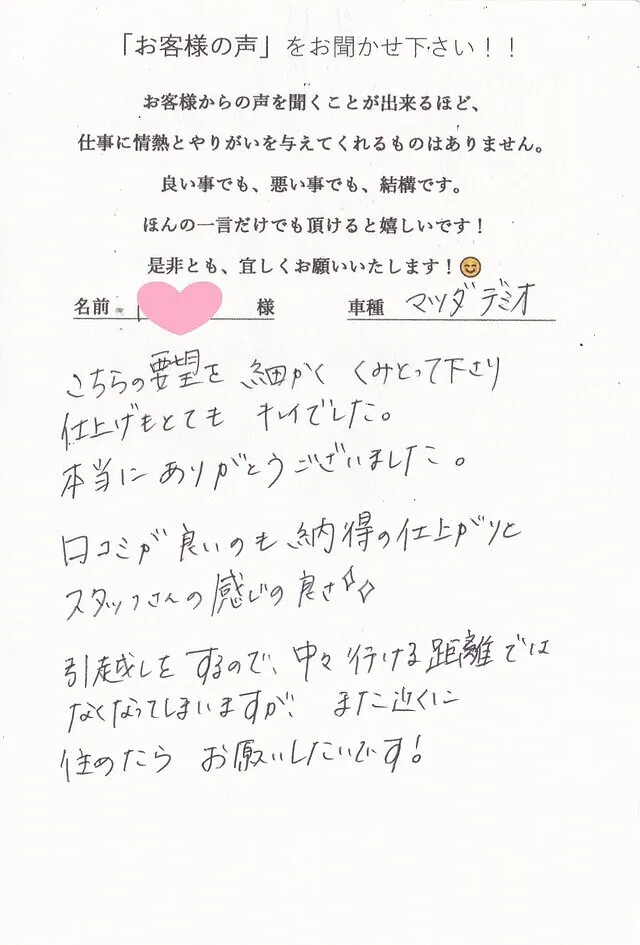 「お客様の声」をお聞かせ下さい！！
お客様からの声を聞くことが出来るほど、
仕事に情熱とやりがいを与えてくれるものはありません。
良い事でも、悪い事でも、結構です。
ほんの一言だけでも頂けると嬉しいです！
是非とも、宜しくお願いいたします！😊
名前 様 車種 マツダデミオ
こちらの要望を 細かく くみとって下さり
仕上げもとても キレイでした。
本当に ありがとうございました。
口コミが 良いのも 納得の仕上がりと
スタッフさんの 感じの 良さ✨
引越しを するので、中々 行ける 距離では
なくなってしまいますが、また近くに
住めたら お願いしたいです！